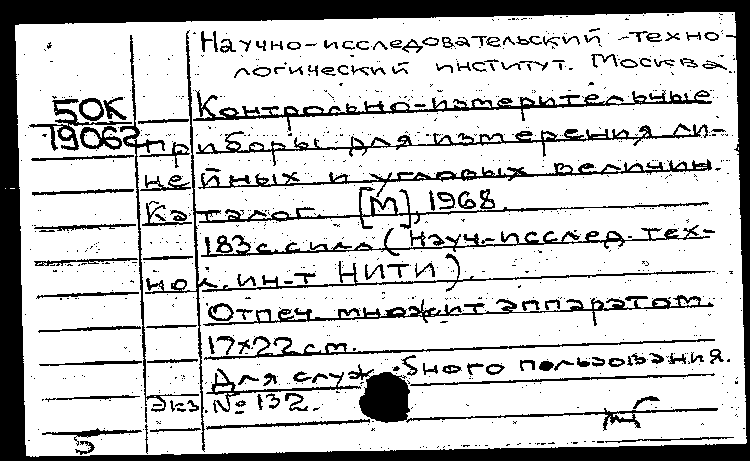 Научно-исследовательский техно-
логический институт. Москва.
50К Контрольно-измерительные
19062 приборы для измерения ли-
нейных и угловых величин.
Каталог. [М], 1968.
183 с. с илл (Науч.-исслед. тех-
нол. ин-т НИТИ).
Отпеч. множит. аппаратом.
17х22 см.
Для служебного пользования.
Экз. № 132.
5